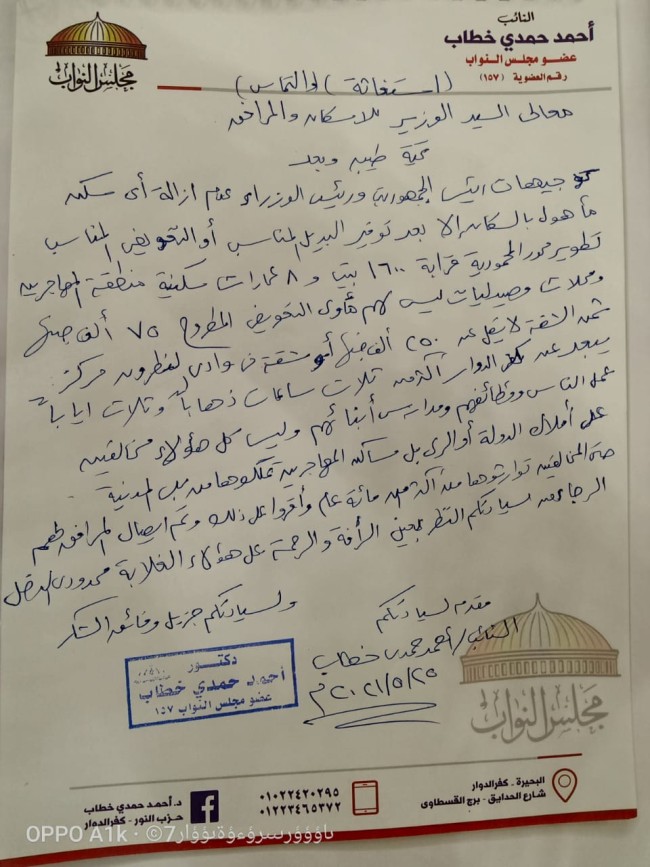 النائب
أحمد حمدي خطاب
عضو مجلس النواب
رقم العضوية (١٥٧)
مجلس النواب
(استغاثة) (والتماس)
معالى السيد الوزير للاسكان والمرافق
تحية طيبه وبعد
توجيهات رئيس الجمهورية ورئيس الوزراء عدم ازالة أى سكن
مأهول بالسكان الا بعد توفير البديل المناسب أو التعويض المناسب
تطوير محور المحمودية قرابة ١٦٠٠ بيت و ٨ عمارات سكنية منطقة المهاجرين
ومحلات وصيدليات ليس لهم مأوى التعويض المطروح ٧٥ ألف جنيها
ثمن الشقة لا يقل عن ٢٥٠ ألف جنيها أو شقة فى وادى النطرون مركز
يبعد عن كفر الدوار أكثر من ثلاث ساعات ذهابا وثلاث ايابا
عمل الناس ووظائفهم ومدارس أبنائهم وليس كل هؤلاء مخالفين
على أملاك الدولة أو الرى بل مساكن المهاجرين تملكوها من المدنية
حتى المخالفين توارثوها منذ أكثر من مائة عام وأقروا على ذلك وتم ايصال المرافق لهم
الرجاء من سيادتكم النظر بعين الرأفة والرحمة على هؤلاء الغلابة محدودى الدخل
ولسيادتكم جزيل وفائق الشكر
مقدمه لسيادتكم
النائب/ أحمد حمدى خطاب
٢٠٢١/٥/٢٥ م
دكتور
أحمد حمدي خطاب
عضو مجلس النواب ١٥٧
مجلس النواب
البحيرة - كفر الدوار
شارع الحدايق - برج القسطاوى
٠١٠٢٢٤٢٠٢٩٥
٠١٢٢٣٤٦٥٣٧٢
د. أحمد حمدي خطاب
حزب النور - كفر الدوار
OPPO A1k